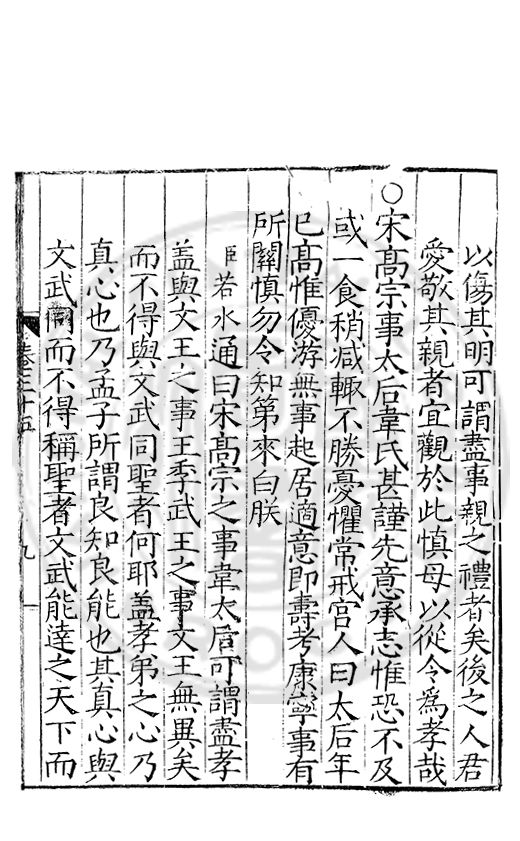 以傷其明可謂盡事親之禮者矣後之人君
愛敬其親者宜觀於此慎毋以從令為孝哉
○宋高宗事太后韋氏甚謹先意承志惟恐不及
或一食稍减輒不勝憂懼常戒宫人曰太后年
已高惟優游無事起居適意即壽考康寧事有
所關慎勿令知第來白朕
臣若水通曰宋高宗之事韋太后可謂盡孝
盖與文王之事王季武王之事文王無異矣
而不得與文武同聖者何耶盖孝弟之心乃
真心也乃孟子所謂良知良能也其真心與
文武同而不得稱聖者文武能達之天下而
卷三十五
九